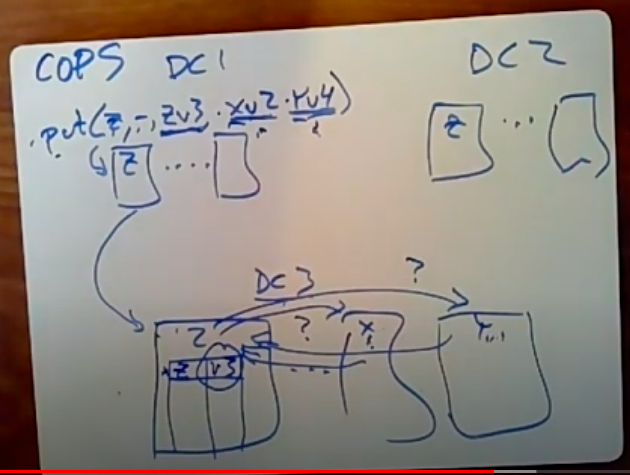 COPS DC1 DC2
put(z, -, zv3, xv2, yv4)
z .... z ...
DC3 ?
z ? x y
z v3